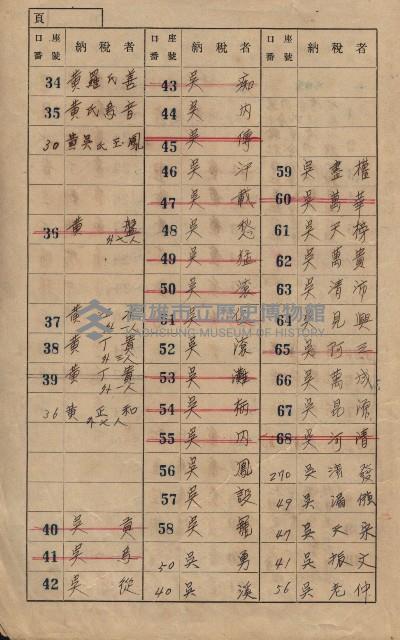 頁
口座番號 納稅者
34 黃羅氏善
35 黃氏烏香
30 黃吳氏玉鳳
36 黃盤 外七人
37 黃 外一人
38 黃丁貴 外三人
39 黃丁貴 外二人
36 黃正和 外七人
40 吳黃
41 吳馬
42 吳從
口座番號 納稅者
43 吳痴
44 吳內
45 吳傳
46 吳汗
47 吳戴
48 吳愁
49 吳猛
50 吳
51 吳
52 吳
53 吳灘
54 吳柄
55 吳內
56 吳鳳
57 吳設
58 吳寵
50 吳勇
40 吳溪
口座番號 納稅者
59 吳盡權
60 吳萬華
61 吳天榜
62 吳萬貴
63 吳清
64 吳昆興
65 吳阿三
66 吳萬成
67 吳昆源
68 吳河清
270 吳清發
49 吳
47 吳天來
41 吳振文
56 吳老仲
高雄市立歷史博物館
KAOHSIUNG MUSEUM OF HISTORY